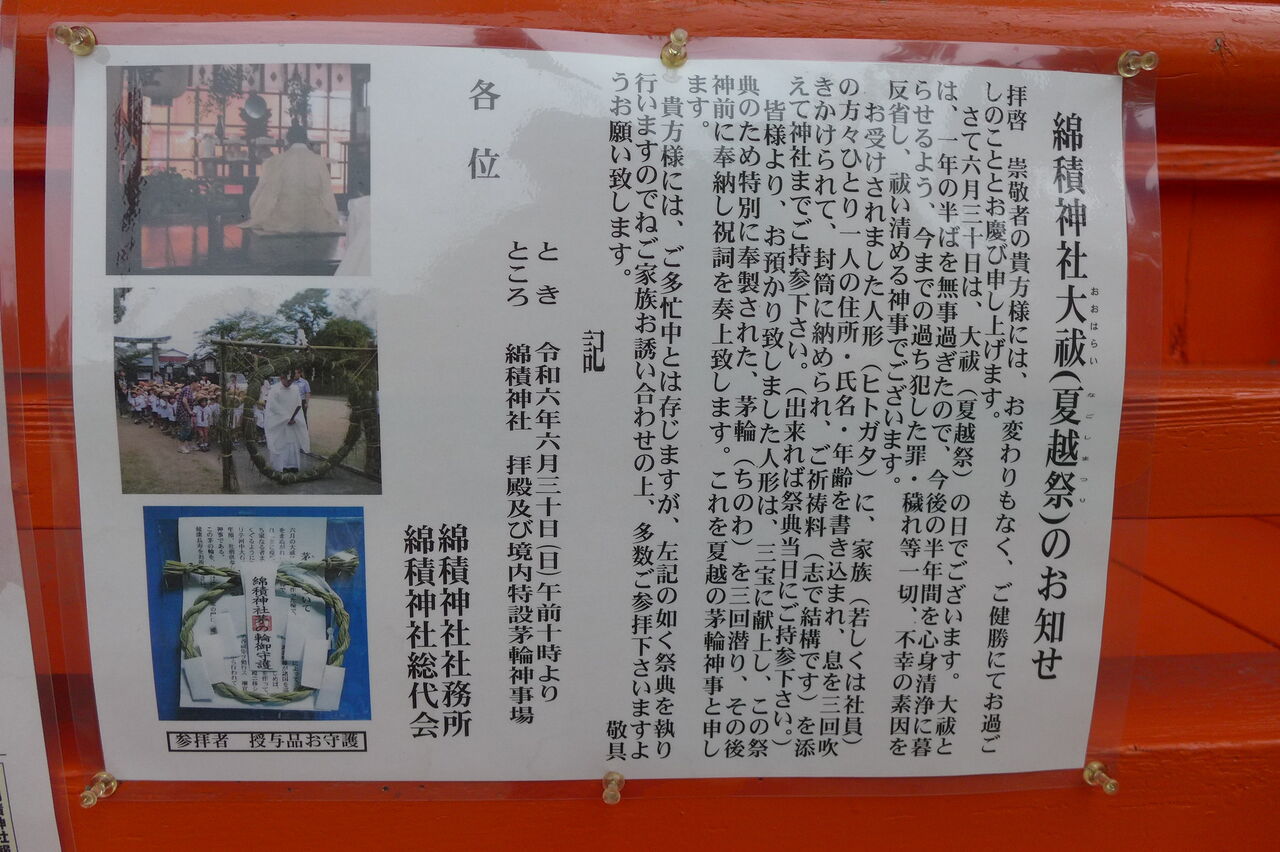 綿積神社大祓(夏越祭)のお知らせ
おおはらい
なごしまつり
拝啓　崇敬者の貴方様には、お変わりもなく、ご健勝にてお過ご
しのこととお慶び申し上げます。
さて六月三十日は、大祓（夏越祭）の日でございます。大祓と
は、一年の半ばを無事過ぎたので、今後の半年間を心身清浄に暮
らせるよう、今までの過ち犯した罪・穢れ等一切、不幸の素因を
反省し、祓い清める神事でございます。
お受けされました人形（ヒトガタ）に、家族（若しくは社員）
の方々ひとり一人の住所・氏名・年齢を書き込まれ、息を三回吹
きかけられて、封筒に納められ、ご祈祷料（志で結構です）を添
えて神社までご持参下さい。（出来れば祭典当日にご持参下さい。）
皆様より、お預かり致しました人形は、三宝に献上し、この祭
典のため特別に奉製された、茅輪（ちのわ）を三回潜り、その後
神前に奉納し祝詞を奏上致します。これを夏越の茅輪神事と申し
ます。
貴方様には、ご多忙中とは存じますが、左記の如く祭典を執り
行いますのでねご家族お誘い合わせの上、多数ご参拝下さいますよ
うお願い致します。
敬具
記
とき　令和六年六月三十日(日)午前十時より
ところ　綿積神社　拝殿及び境内特設茅輪神事場
各位
綿積神社社務所
綿積神社総代会
綿積神社茅の輪御守護
参拝者　授与品お守護